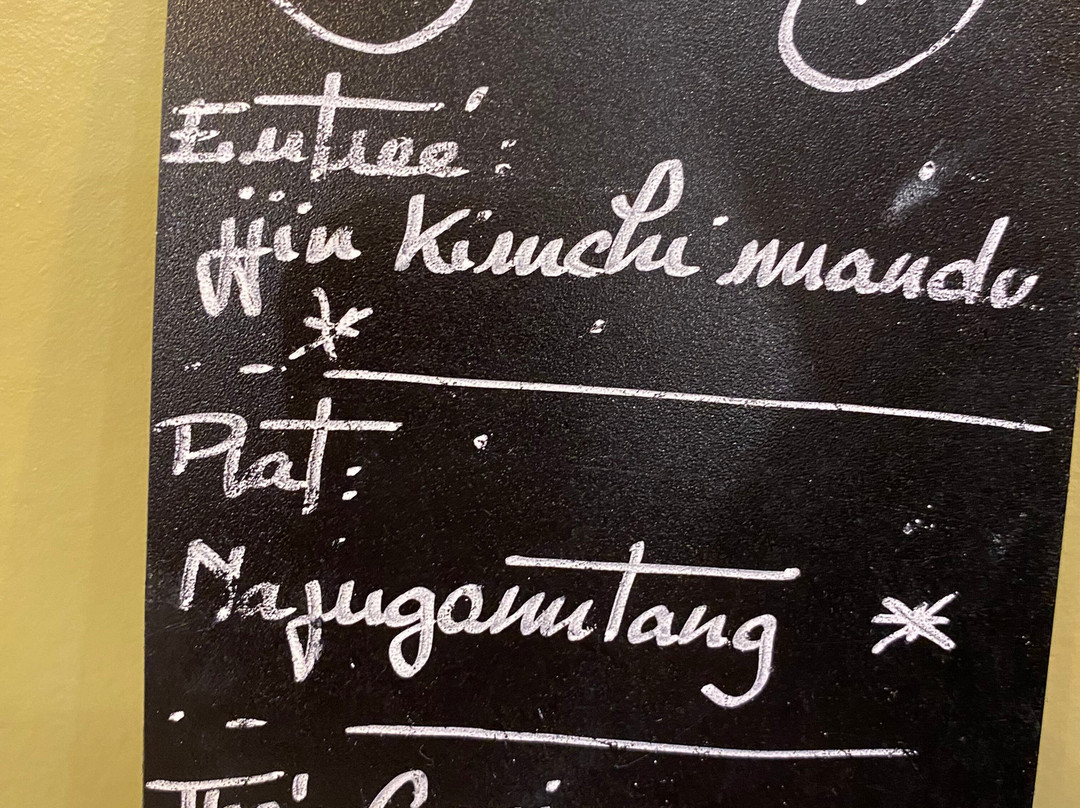 Entrée :
jjin Kimchi mandu
*
Plat :
Najugomtang *
Thé